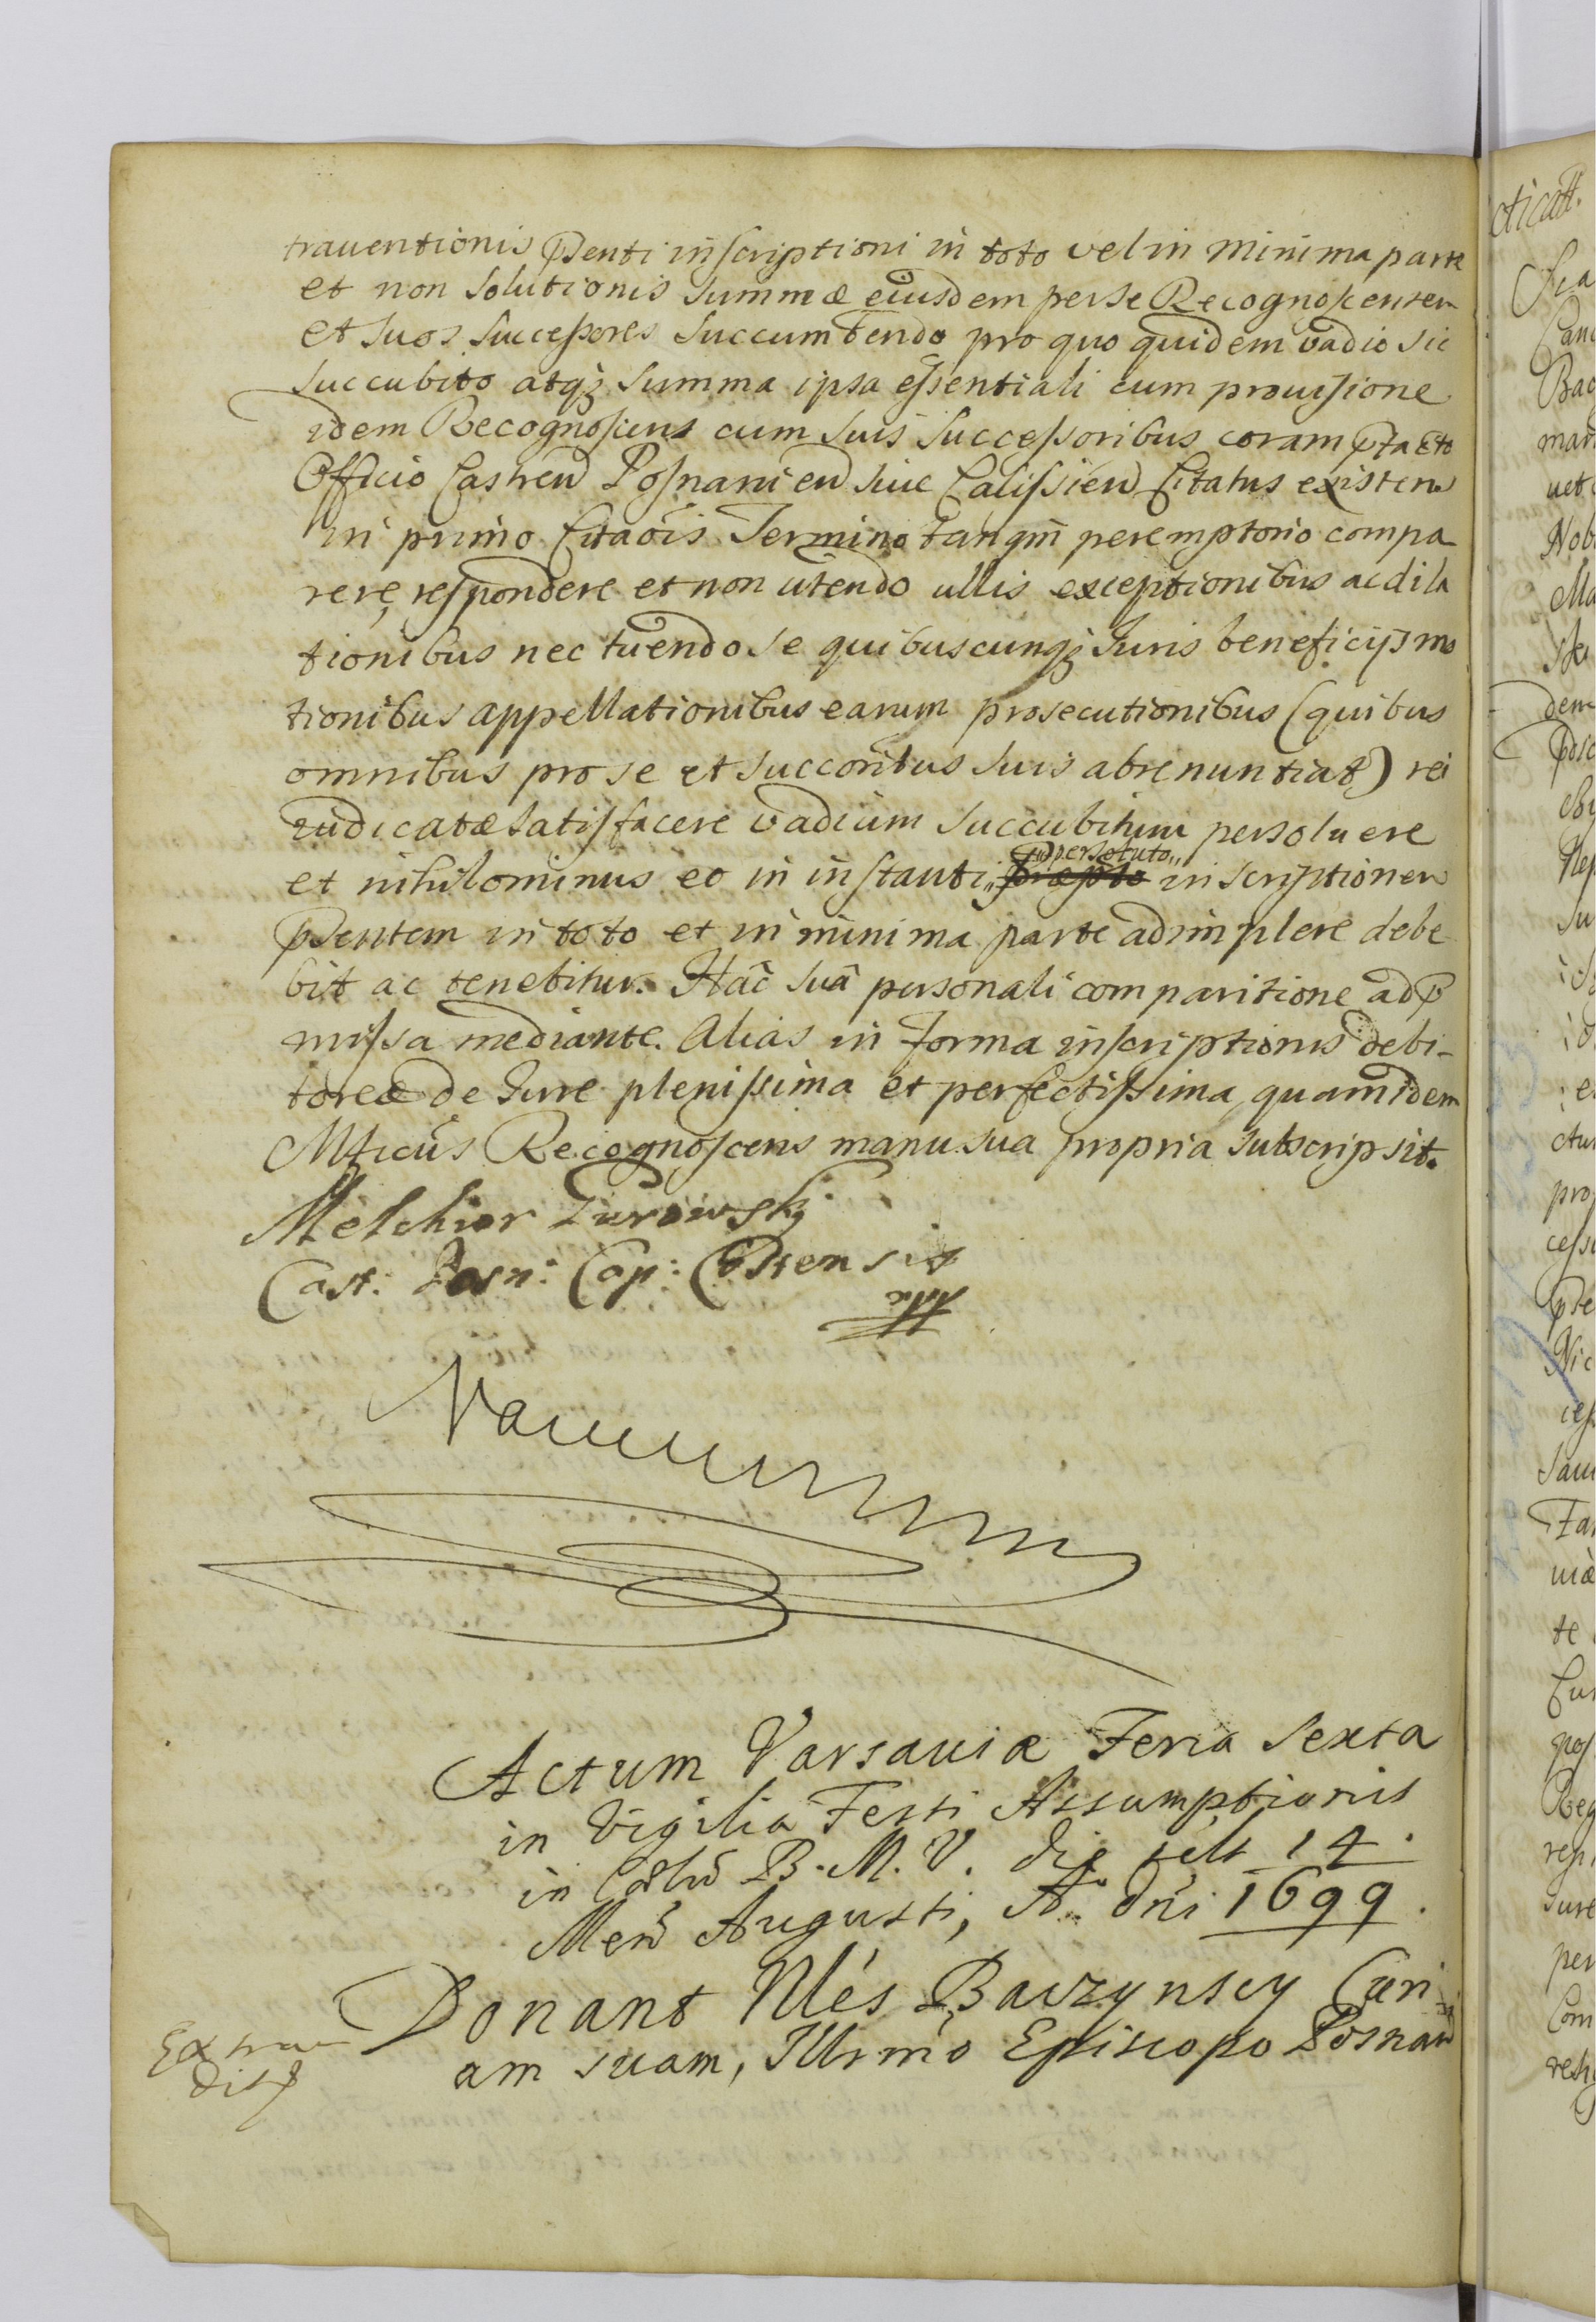 trauentionis pſenti inſcriptioni in toto vel in minima parte
et non solutionis summæ eiusdem per se Recognoſcentem
et suos succeſsores succumbendo pro quo quidem vadio sic
succubito atq; summa ipsa eſsentiali cum prouiſione
idem Recognoſcens cum suis succeſsoribus coram ptacto
Officio Castren Poſnanien siue Caliſsien Citatus existens
in primo Citaōis Termino tanqm̄ peremptorio compa
rere, reſpondere et non utendo ullis exceptionibus ac dila
tionibus nec tuendo se quibuscunq; Iuris beneficijs mo
tionibus appellationibus earum prosecutionibus (quibus
omnibus pro se et succoribus suis abrenuntiat) rei
iudicatæ satiſfacere vadium succubitum persoluere
et nihilominus eo in inſtanti persoluto inscriptionem
pſentem in toto et in minima parte adimplere debe
bit ac tenebitur. Hāc suā personali comparitione ad p
miſsa mediante. Alias in forma inſcriptionis debi-
toreæ de Iure pleniſsima et perfectiſsima, quam idem
Mficūs Recognoſcens manu sua propria subscripsit.
Melchior Gurowskj
Cast: Posn: Cap: Costensis
Actum Varsauiæ Feria Sexta
in Vigilia Festi Assumptionis
in Cœlū B. M. V. die scilt 14.
Men̄ Augusti, Ao dn̄i 1699.
Donant Nlēs Bawzynscy Curi-
am suam, Illrmō Episcopo Posnan
Extra
dit